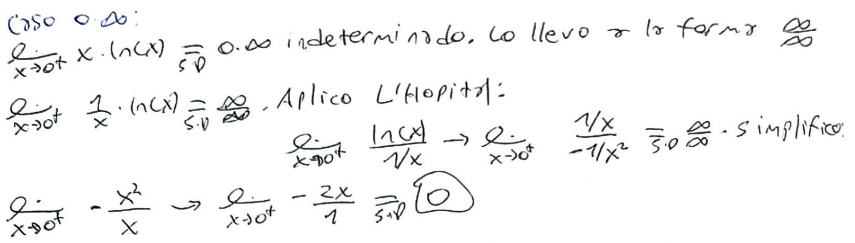 Caso 0.∞:
lim x→0+ x.ln(x) =S.D 0.∞ indeterminado. Lo llevo a la forma ∞/∞
lim x→0+ 1/x . ln(x) =S.D ∞/∞. Aplico L'Hopital:
lim x→0+ ln(x)/1/x → lim x→0+ 1/x / -1/x² =S.D ∞/∞. Simplifico:
lim x→0+ - x²/x → lim x→0+ - 2x/1 =S.D 0